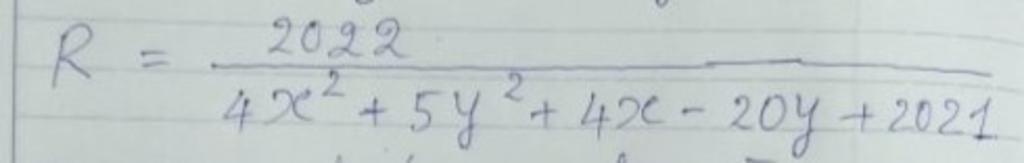 R = 2022 / (4x² + 5y² + 4x - 20y + 2021)